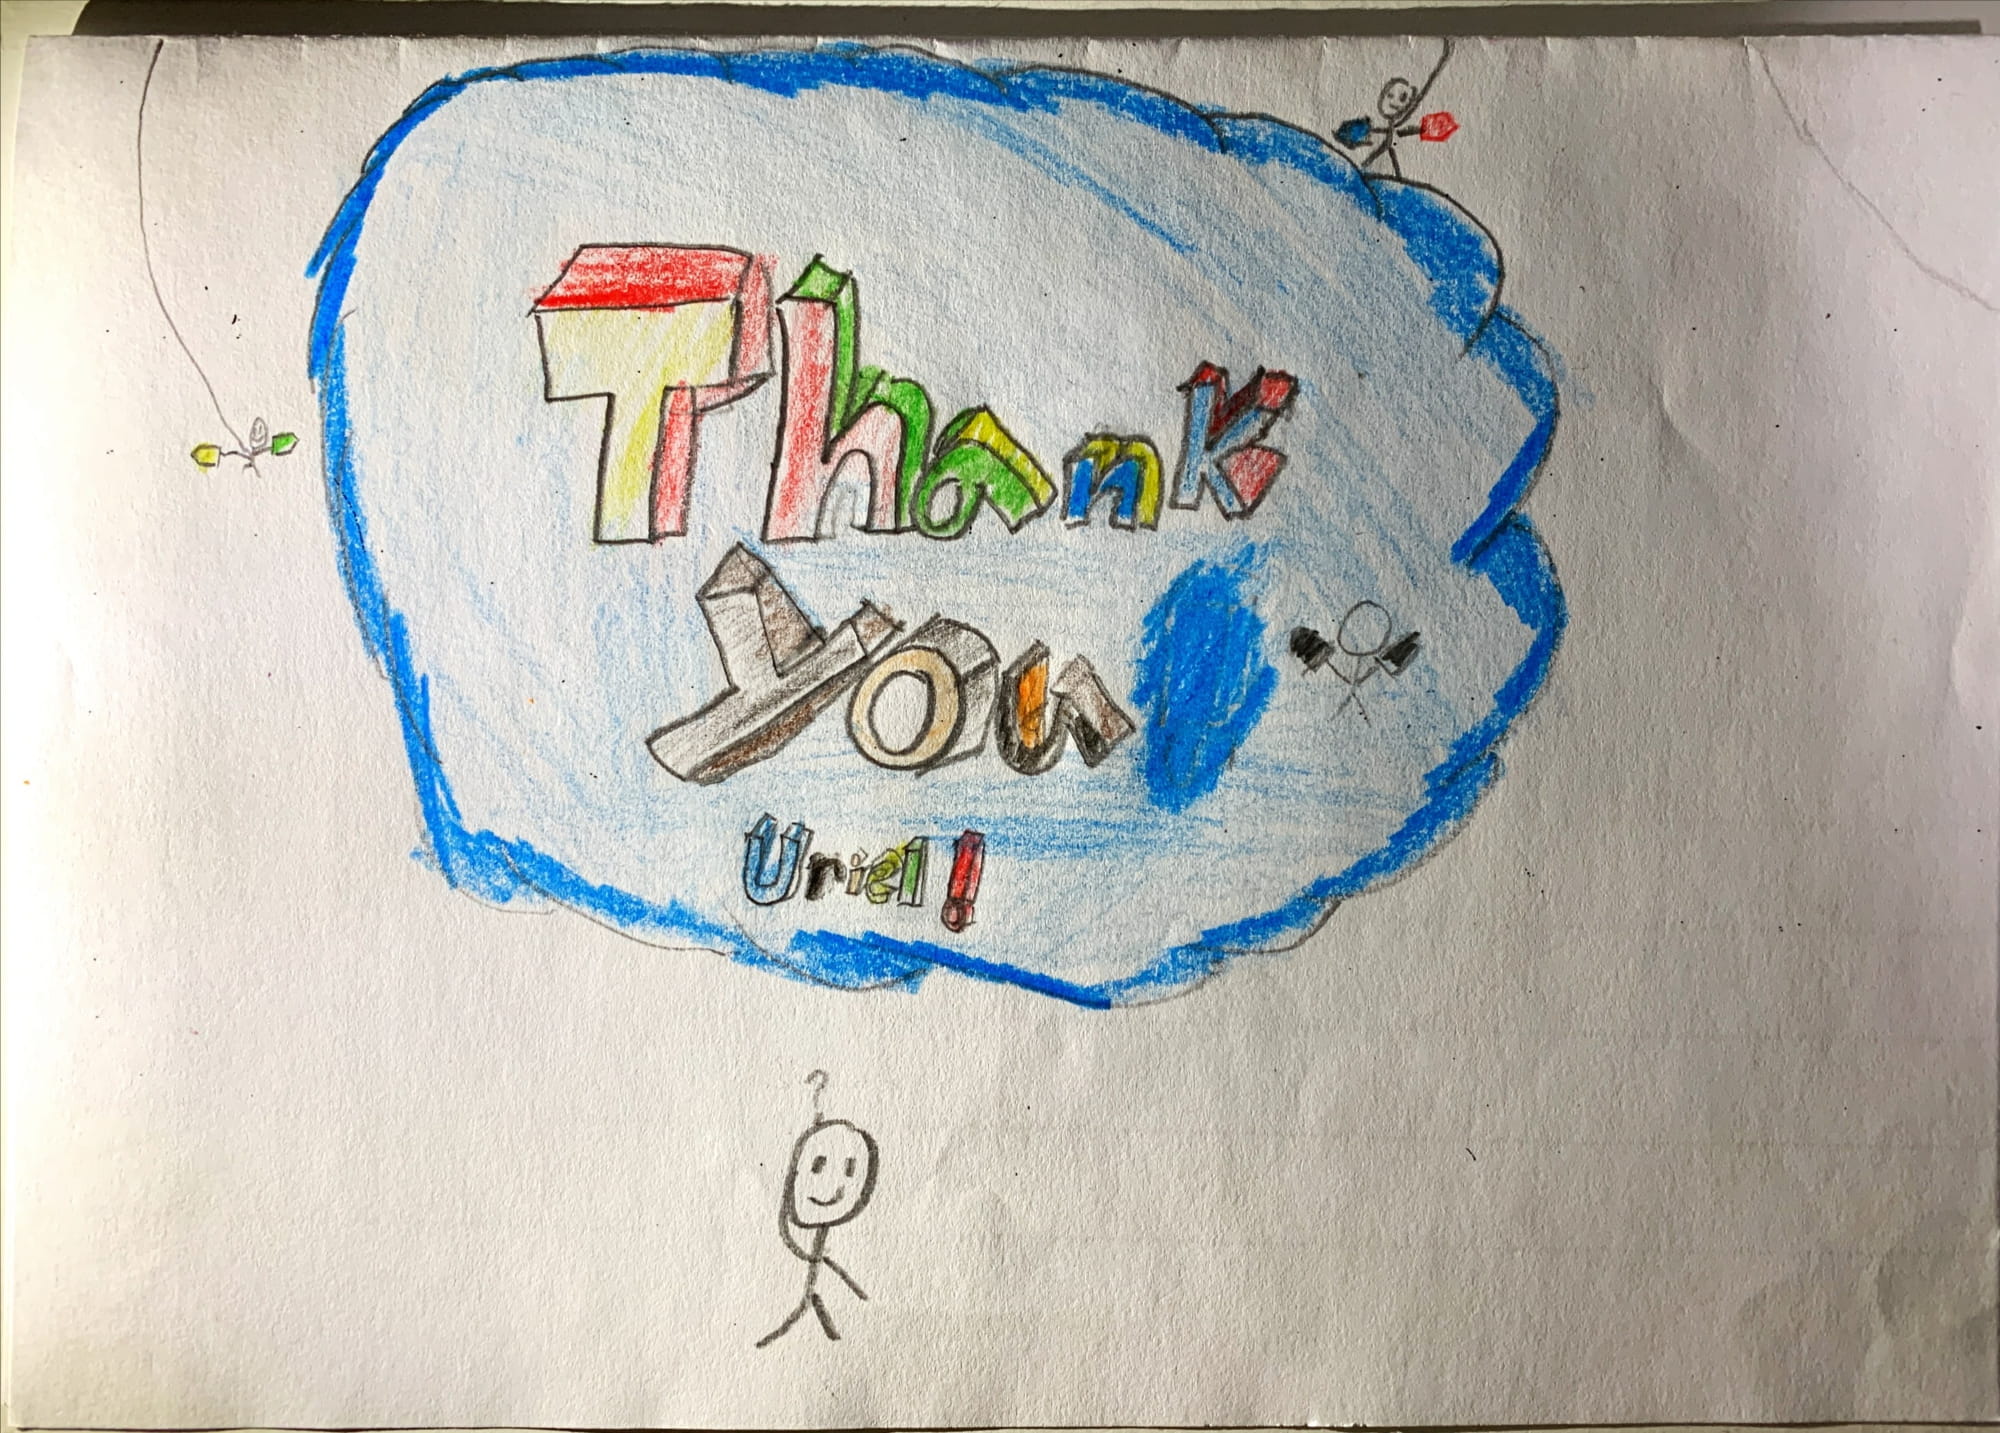 Thank
You
Uriel!
?